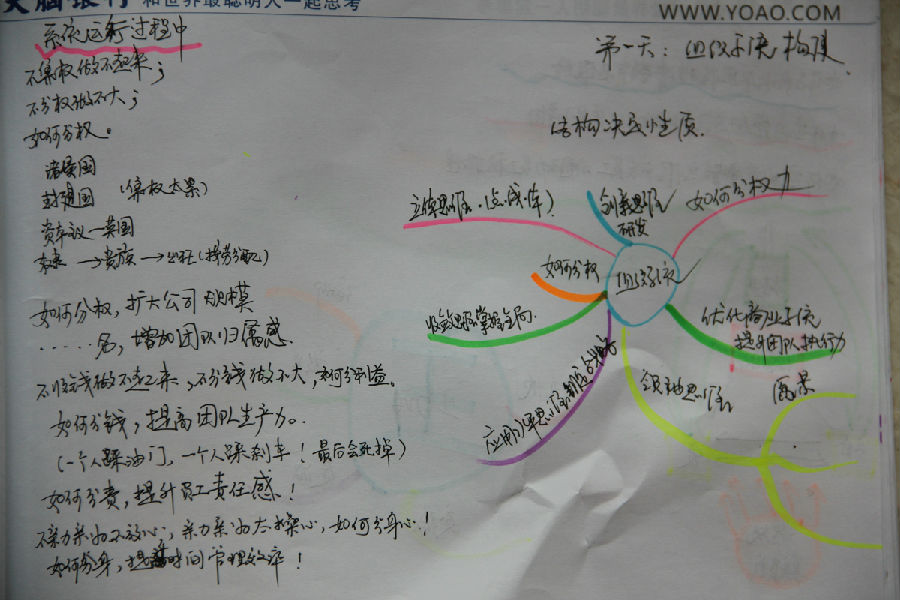 和世界最聪明人一起思考
WWW.YOAO.COM
系统运行过程中
不集权做不起来；
不分权做不大；
如何分权。
诸侯国
封建国（集权太累）
资本议—英国
→贵族→（按劳分配）
如何分权，扩大公司规模
……名，增加团队归属感.
不分钱做不起来，不分钱做不大，如何分利益。
如何分钱，提高团队生产力。
（一个人踩油门，一个人踩刹车！最后会死掉）
如何分责，提升员工责任感！
不亲力亲为不放心，亲力亲为太操心，如何分身心！
如何分身，提时间管理效率！
第一天：组织系统构建
结构决定性质.
立体思维.（点线体）
创新思维
研发
如何分权力
如何分权
组织系统
收敛思维掌握全局.
优化商业系统
提升团队执行力
领袖思维
应用思维